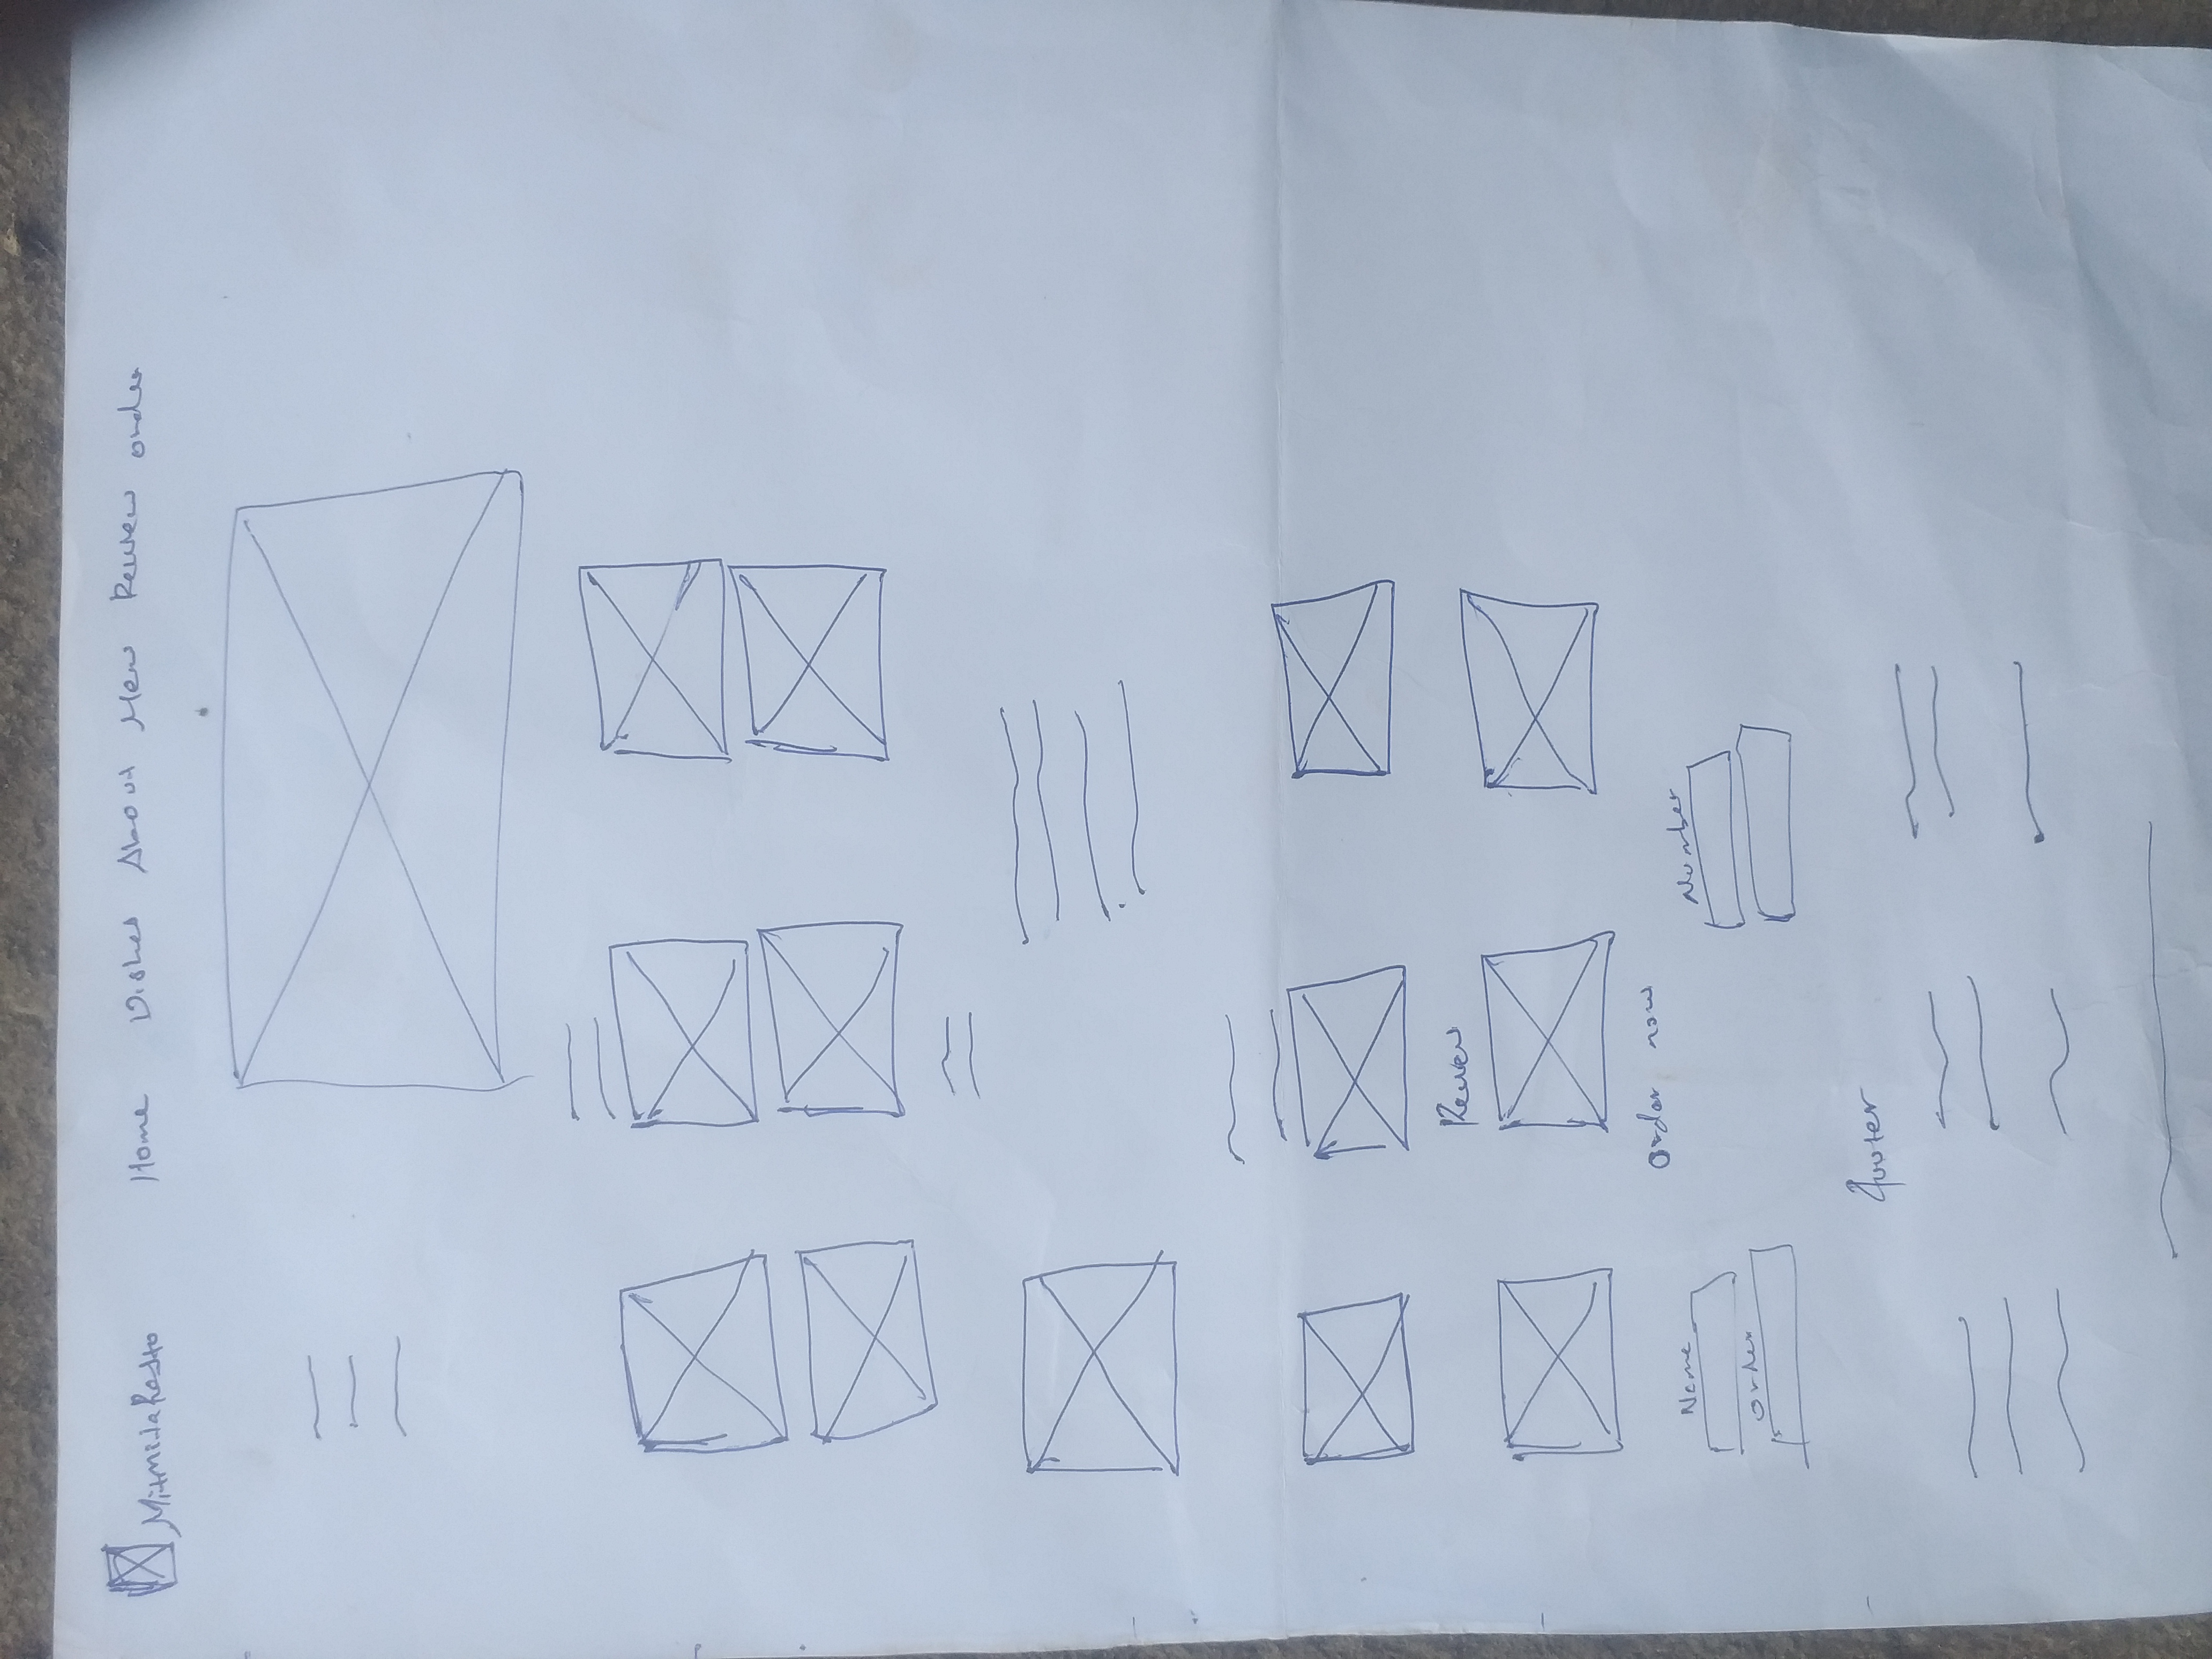 MitmitaResto Home Dishes About Menu Review order
Review
order now
Name Number
order
footer